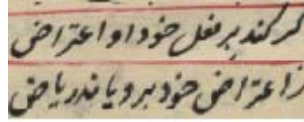 گر کند بر فعل خود او اعتراض
ز اعتراض خود برویاند ریاض